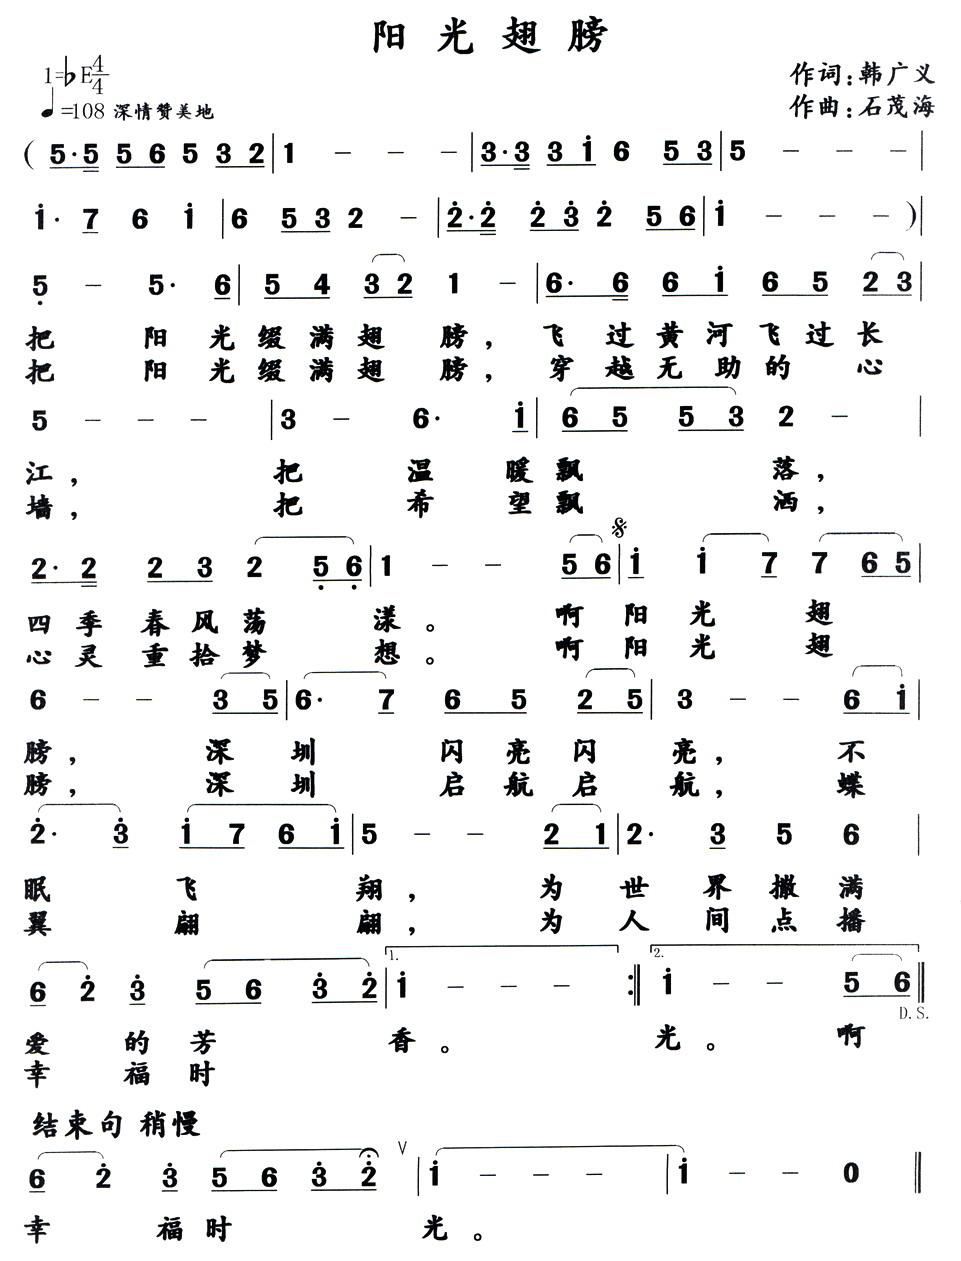 阳光翅膀
1=♭E 4/4
作词:韩广义
♩=108 深情赞美地
作曲:石茂海
( 5·5 5 6 5 3 2 | 1 - - - | 3·3 3 i 6 5 3 | 5 - - - |
i· 7 6 i | 6 5 3 2 - | 2·2 2 3 2 5 6 | i - - - ) |
5 - 5· 6 | 5 4 3 2 1 - | 6· 6 6 i 6 5 2 3 |
把 阳 光 缀 满 翅 膀, 飞 过 黄 河 飞 过 长
把 阳 光 缀 满 翅 膀, 穿 越 无 助 的 心
5 - - - | 3 - 6· i | 6 5 5 3 2 - |
江, 把 温 暖 飘 落,
墙, 把 希 望 飘 洒,
2· 2 2 3 2 5 6 | 1 - - 5 6 | i i 7 7 6 5 |
四 季 春 风 荡 漾。 啊 阳 光 翅
心 灵 重 拾 梦 想。 啊 阳 光 翅
6 - - 3 5 | 6· 7 6 5 2 5 | 3 - - 6 i |
膀, 深 圳 闪 亮 闪 亮, 不
膀, 深 圳 启 航 启 航, 蝶
2· 3 i 7 6 i | 5 - - 2 1 | 2· 3 5 6 |
眠 飞 翔, 为 世 界 撒 满
翼 翩 翩, 为 人 间 点 播
6 2 3 5 6 3 2 | 1. i - - - :| 2. i - - 5 6 ||
D.S.
爱 的 芳 香。 光。 啊
幸 福 时
结束句 稍慢
6 2 3 5 6 3 2 ∨ | i - - - | i - - 0 ||
幸 福 时 光。